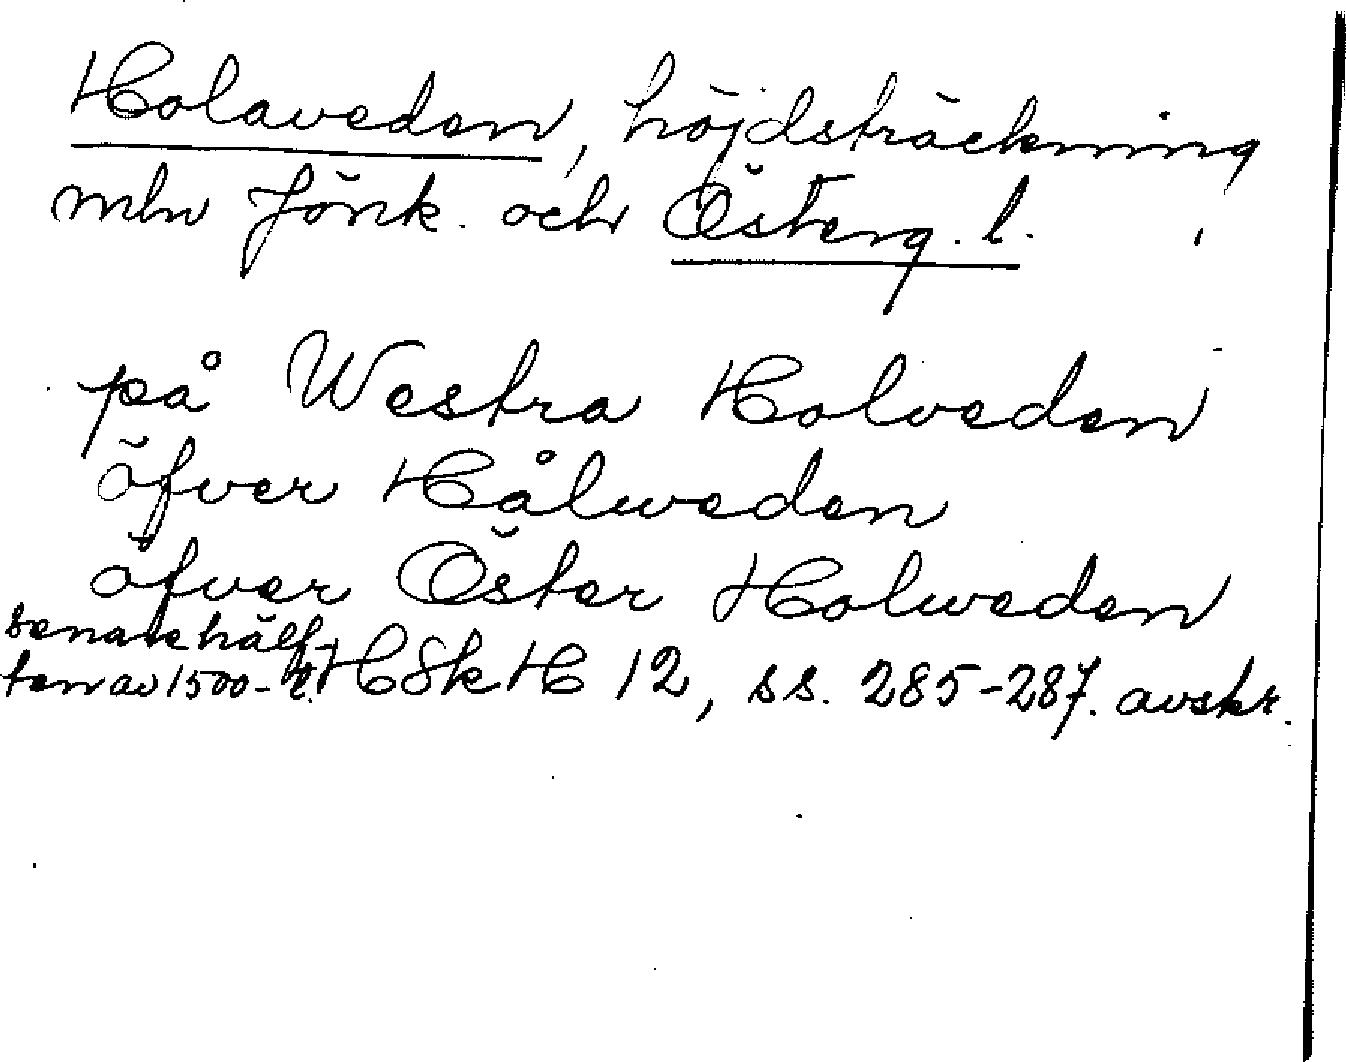 Holaveden, höjdsträckning
mln Jönk. och Österg. l.
på Westra Holveden
öfver Hålweden
öfver Öster Holweden
senare hälf-
ten av 1500-t. HSkH 12, ss. 285-287. avskr.